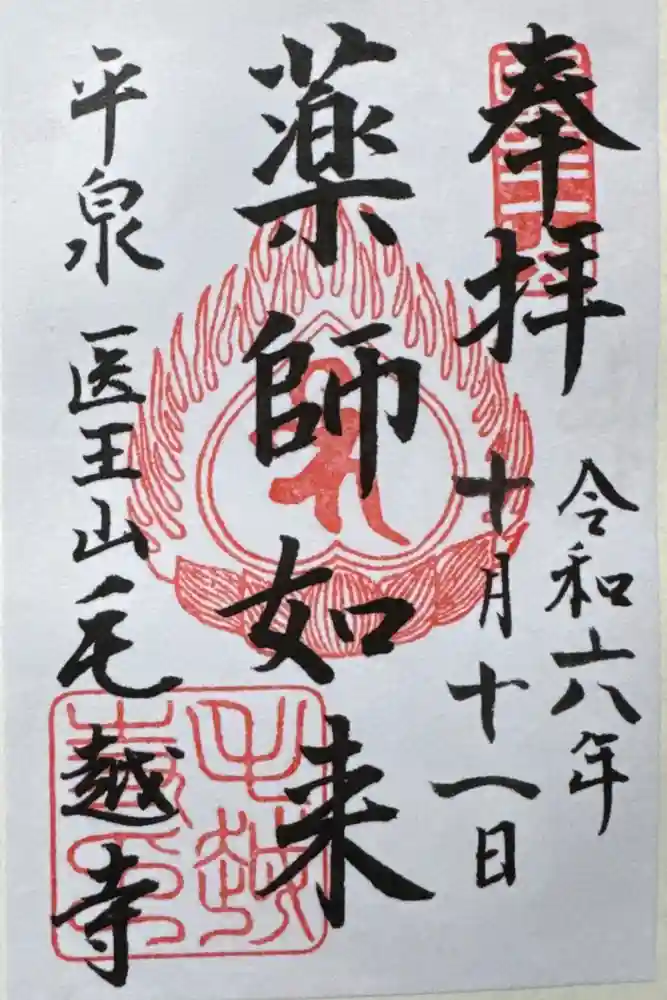 奉拝
令和六年
十月十一日
薬師如来
平泉 医王山 毛越寺